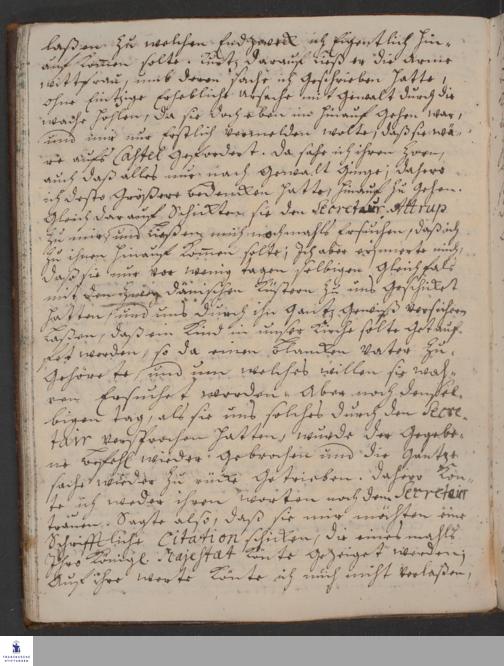 laßen zu welchen Endzweck ich Eigentlich hin-
auf kommen solte. Kurtz darauf ließ er die Arme
wittfrau, umb deren sache ich geschrieben hatte,
ohne Eintzige Erhebliche Ursache mit gewalt durch die
wache hohlen, da sie doch eben im hinauf gehen war,
und mir nur Erstlich vermelden wolte, daß sie wä-
re aufs Castel gefordert. Da sahe ich ihren Zorn,
auch daß alles nur nach Gewalt ginge; dahero
ich desto größere bedencken hatte, hinauf zu gehen.
Gleich darauf schickten sie den Secretair Attrup
zu mir, und ließen mich nochmahls Ersuchen, daß ich
zu ihnen hinauf kommen solte; Ich aber erinnerte mich,
daß sie nur vor wenig tagen selbigen gleichfals
mit den Dänischen Küstern zu uns geschickt
hatten, und uns durch ihn Gantz gewiß versichern
laßen, daß ein Kind in unser Kirche solte getauf-
fet werden, so da einen blancken Vater zu-
gehörete, und um welches willen sie wah-
ren Ersuchet worden. Aber noch densel-
bigen tag, als sie uns solches durch den Secre-
tair versprochen hatten, wurde der gegebe-
ne Befehl wieder gebrochen und die gantze
sache wieder zu rücke getrieben. Dahero kön-
te ich weder ihren worten noch dem Secretair
trauen. Sagte also, daß sie mir möchten eine
Schrifftliche Citation schicken, die einesmahls
Ihro Königl. Majestät könte gezeiget werden;
Auf ihre worte könte ich mich nicht verlaßen,
FRANCKESCHE
STIFTUNGEN